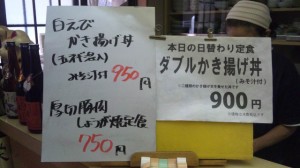 白えび
かき揚げ丼
(玉子入)
みそ汁付 950円
厚切豚肉
しょうが焼定食
750円
本日の日替わり定食
ダブルかき揚げ丼
(みそ汁付)
900円